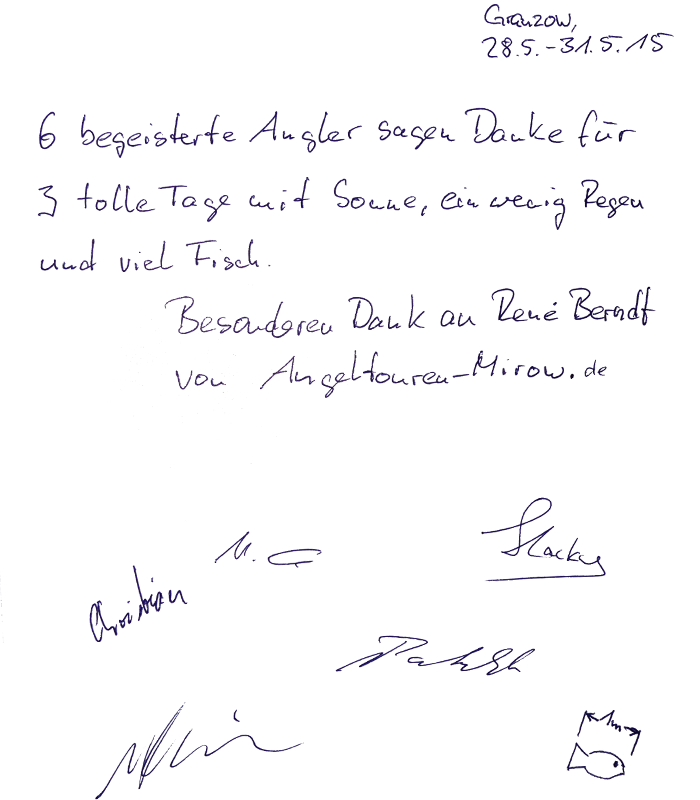 Granzow,
28.5.-31.5.15
6 begeisterte Angler sagen Danke für
3 tolle Tage mit Sonne, ein wenig Regen
und viel Fisch.
Besonderen Dank an René Berndt
von Angeltouren-Mirow.de
Christian
1m